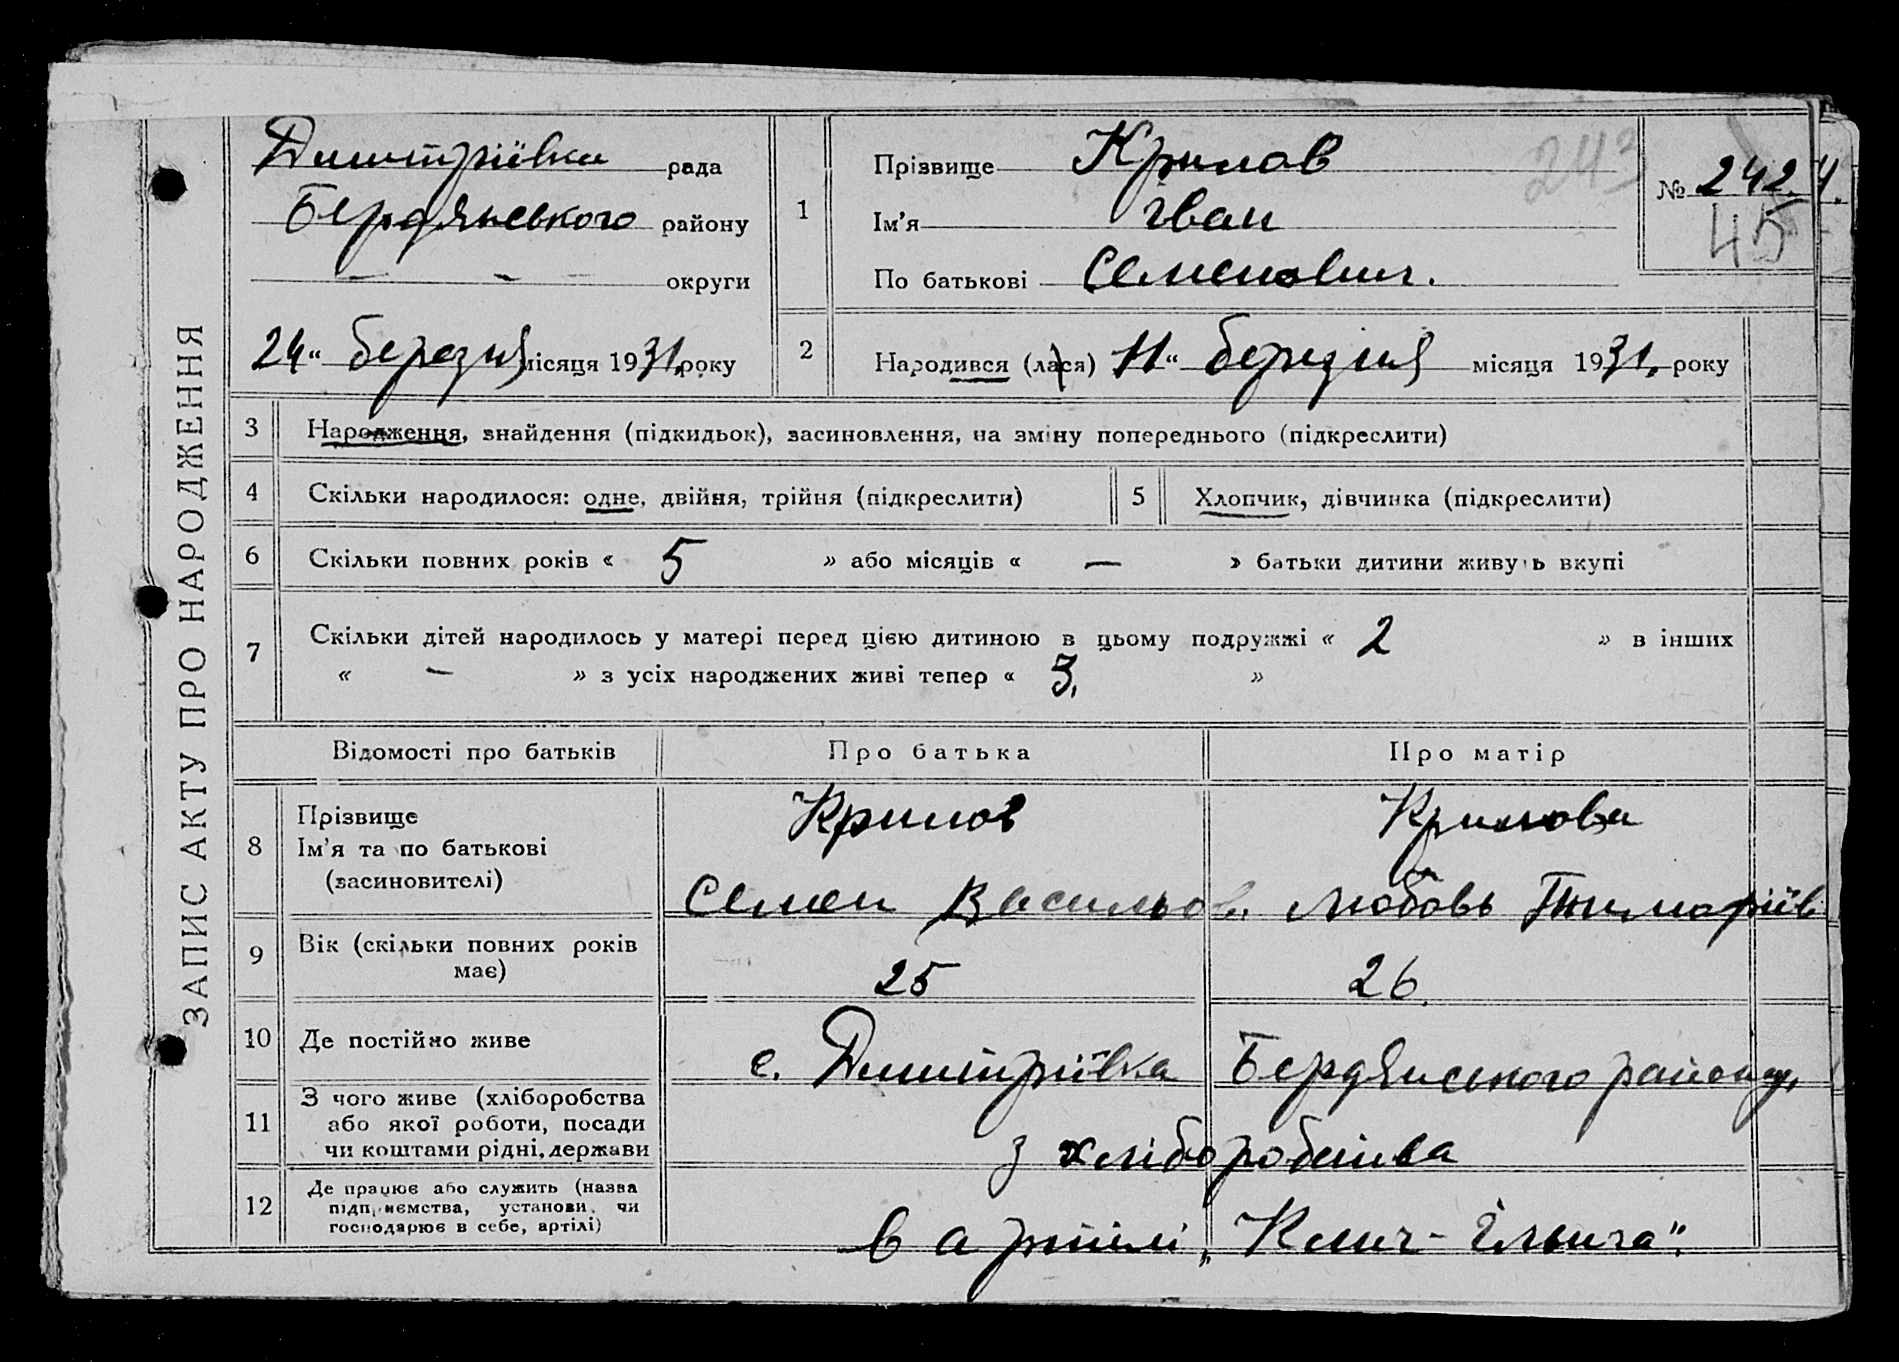 ЗАПИС АКТУ ПРО НАРОДЖЕННЯ
Дмитріївка рада
Бердянського району
— - — округи
24" березня місяця 1931 року
1
Прізвище Крилов
Ім'я Іван
По батькові Семенович.
243
№ 242
45
2
Народився (лася) 11" березня місяця 1931. року
3 Народження, знайдення (підкидьок), засиновлення, на зміну попереднього (підкреслити)
4 Скільки народилося: одне, двійня, трійня (підкреслити) 5 Хлопчик, дівчинка (підкреслити)
6 Скільки повних років « 5 » або місяців « — » батьки дитини живуть вкупі
7 Скільки дітей народилось у матері перед цією дитиною в цьому подружжі « 2 » в інших
« — » з усіх народжених живі тепер « 3. »
Відомості про батьків Про батька Про матір
8 Прізвище Крилов Крилова
Ім'я та по батькові
(засиновителі) Семен Васильов. Любовь Тимофіїв
9 Вік (скільки повних років
має) 25 26.
10 Де постійно живе с. Дмитріївка Бердянського району,
11 З чого живе (хліборобства
або якої роботи, посади
чи коштами рідні, держави з хліборобства
12 Де працює або служить (назва
підприємства, установи, чи
господарює в себе, артілі) в артілі „Клич-Ілліча".